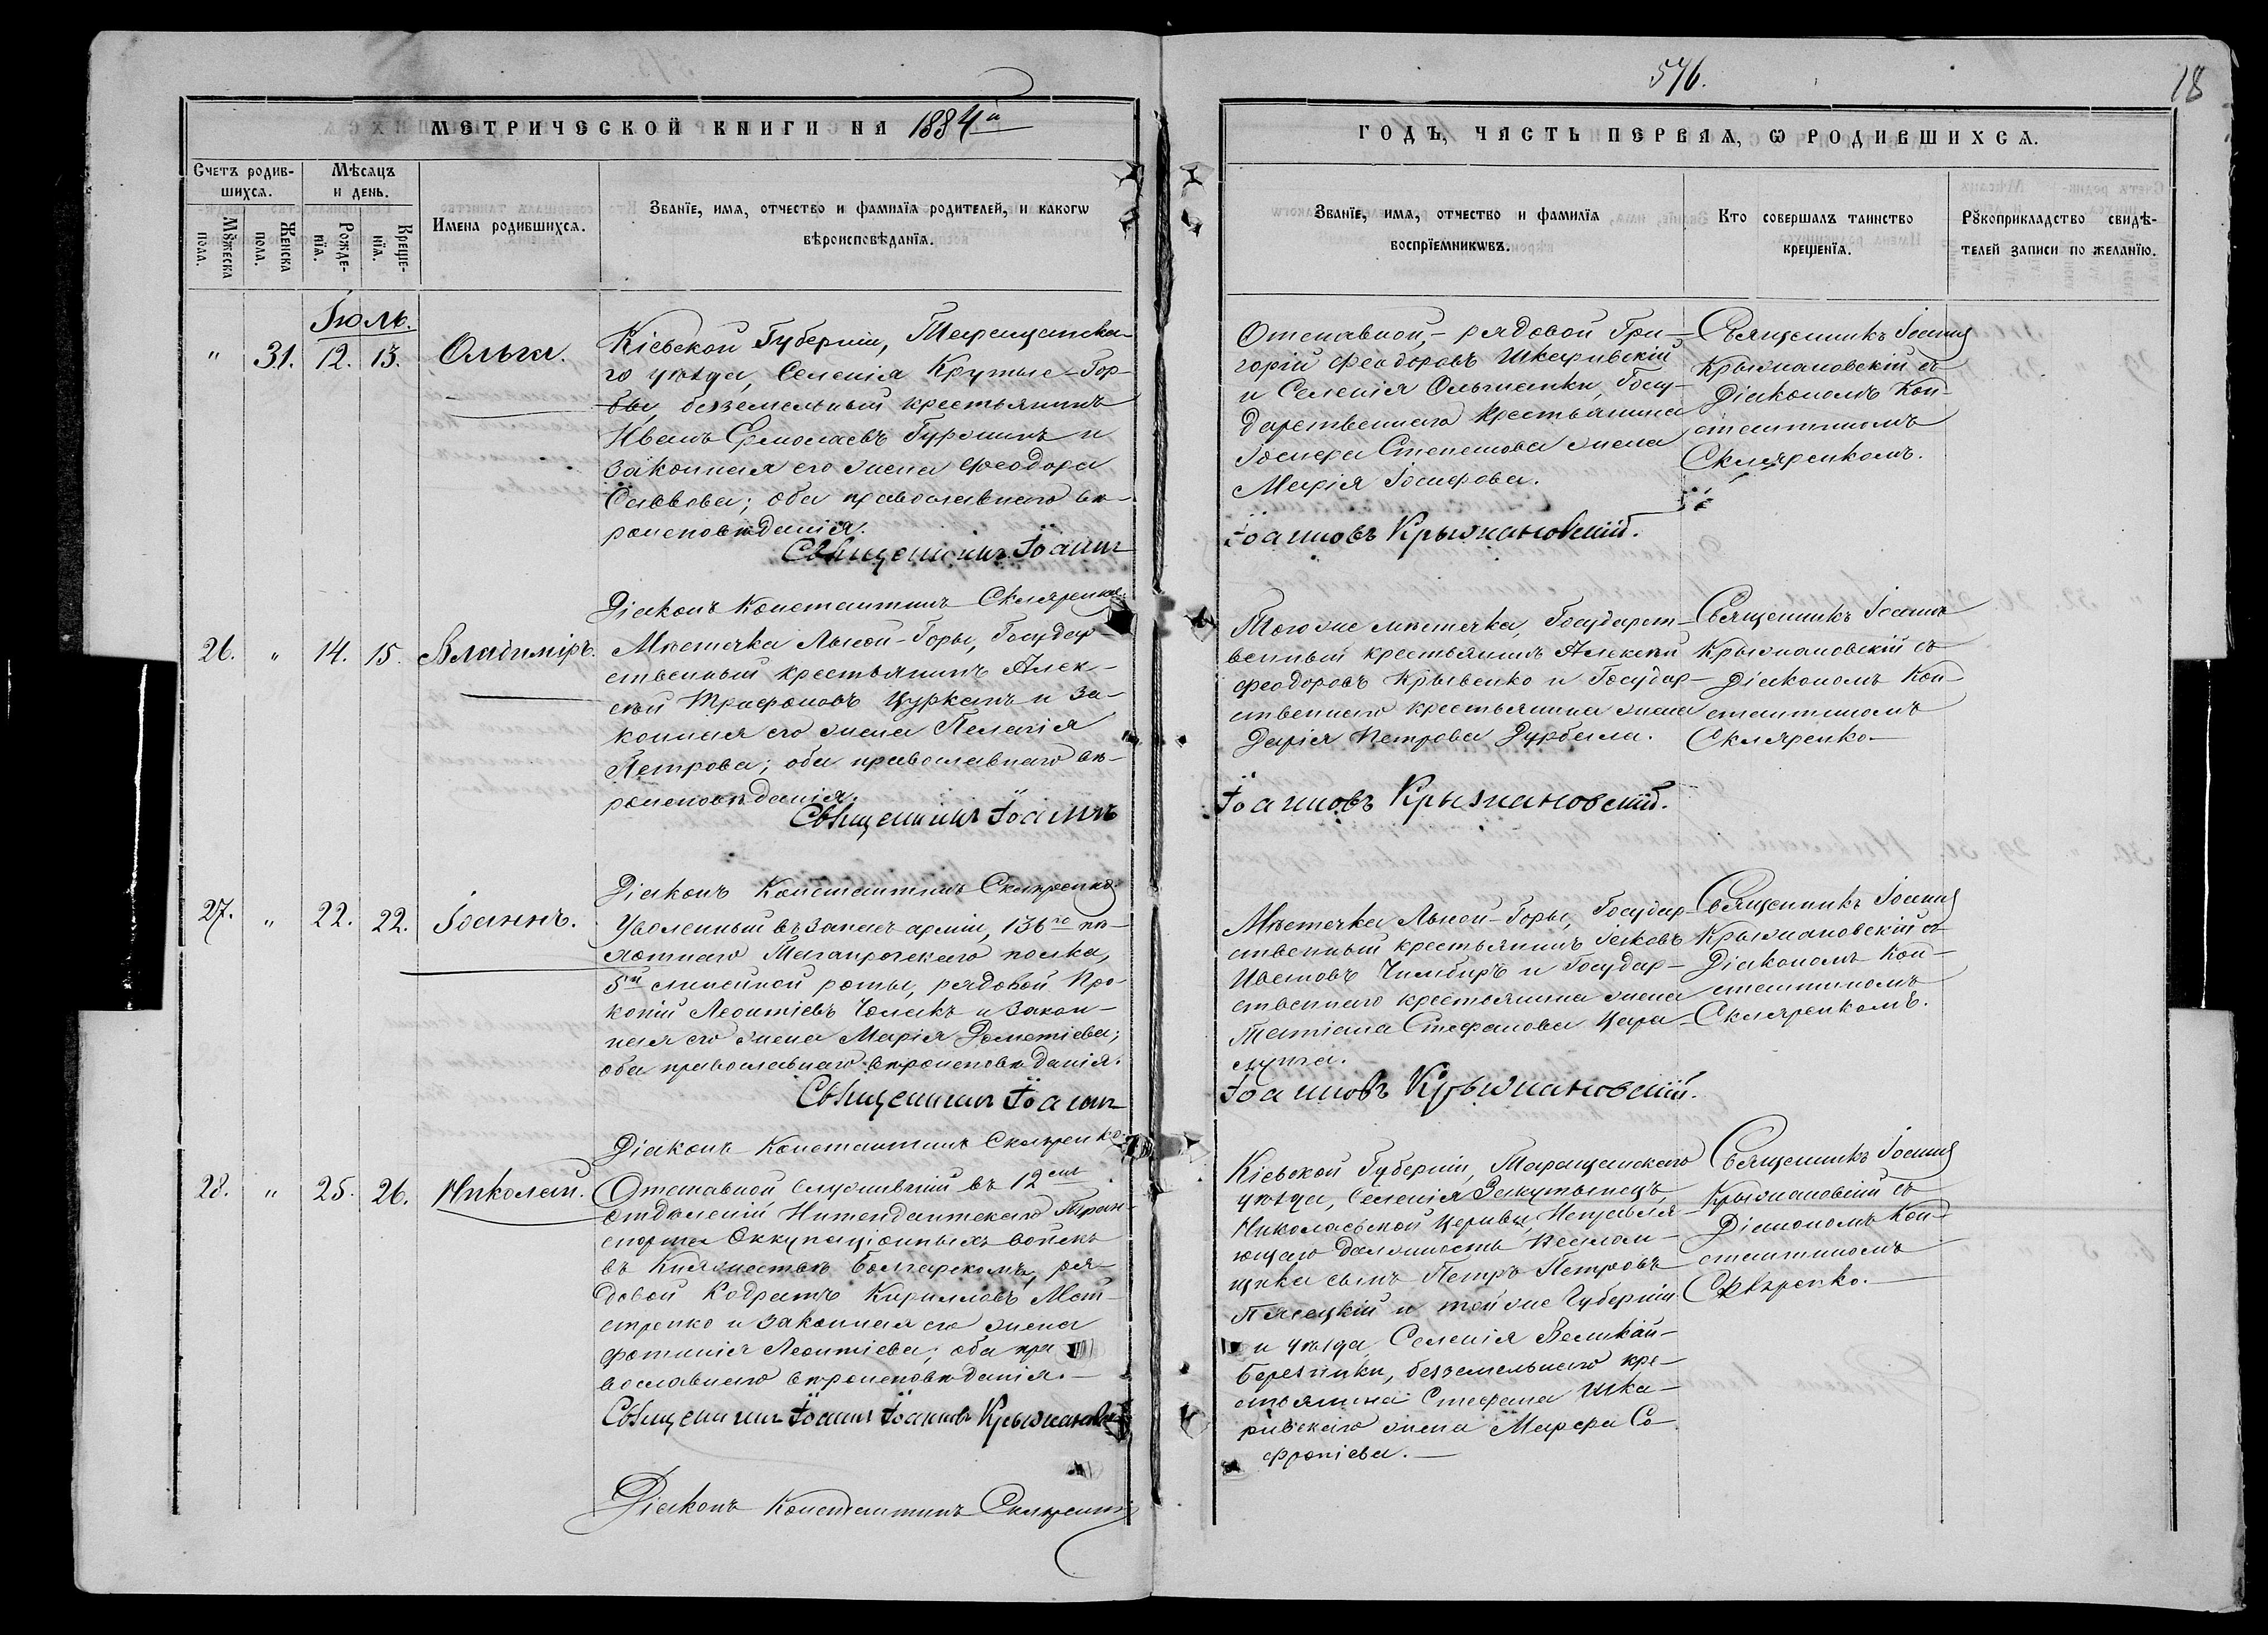 576.
18
МЕТРИЧЕСКОЙ КНИГИ НА 1884й
ГОДЪ, ЧАСТЬ ПЕРВАЯ, Ѡ РОДИВШИХСѦ.
Счетъ родив-
шихсѧ.
Мѣсѧцъ
и день.
Мꙋжеска
пола.
Женска
пола.
Рожде-
нїѧ.
Креще-
нїѧ.
Имена родившихсѧ.
Званїе, имѧ, отчество и фамилїѧ родителей, и какогѡ
вѣроисповѣданїѧ.
Званїе, имѧ, отчество и фамилїѧ
воспрїемникѡвъ.
Кто совершалъ таинство
крещенїѧ.
Рꙋкоприкладство свидѣ-
телей записи по желанїю.
Іюль.
" 31. 12. 13. Ольга.
Кіевской Губерніи, Таращанска-
го уѣзда, Селенія Крутые-Гор-
бы, безземельный крестьянинъ
Иванъ Ермолаевъ и
законная его жена Феодора
Саввова; оба православнаго вѣ-
роисповѣданія.
Священникъ Іоаннъ
Діаконъ Константинъ Скляренко.
Отставной, рядовой Гри-
горій Феодоровъ Шкаривскій
и Селенія Ольшанки, Госу-
дарственнаго крестьянина
Іосифа Степанова жена
Марія Іосифова.
Іоанновъ Крыжановскій.
Священникъ Іоаннъ
Крыжановскій съ
Діакономъ Кон-
стантиномъ
Скляренкомъ.
26. " 14. 15. Владиміръ.
Мѣстечка Лысой-Горы, Государ-
ственный крестьянинъ Алек-
сѣй Трифоновъ Цурканъ и за-
конная его жена Пелагія
Петрова; оба православнаго вѣ-
роисповѣданія.
Священникъ Іоаннъ
Діаконъ Константинъ Скляренко.
Того же мѣстечка, Государст-
венный крестьянинъ Алексѣй
Феодоровъ Крывенко и Государ-
ственнаго крестьянина жена
Дарія Петрова Дурбала.
Іоанновъ Крыжановскій.
Священникъ Іоаннъ
Крыжановскій съ
Діакономъ Кон-
стантиномъ
Скляренко
27. " 22. 22. Іоаннъ.
Уволенный въ запасъ арміи, 136го пѣ-
хотнаго Таганрогскаго полка,
5й линейной роты, рядовой Про-
копій Леонтіевъ и закон-
ная его жена Марія Дометіева;
оба православнаго вѣроисповѣданія.
Священникъ Іоаннъ
Діаконъ Константинъ Скляренко.
Мѣстечка Лысой-Горы, Государ-
ственный крестьянинъ Іаковъ
Ивановъ Чимбиръ и Государ-
ственнаго крестьянина жена
Татіана Стефанова Цара-
лунга.
Іоанновъ Крыжановскій.
Священникъ Іоаннъ
Крыжановскій съ
Діакономъ Кон-
стантиномъ
Скляренкомъ.
28. " 25. 26. Николай.
Отставной служившій въ 12омъ
отдѣленіи Интендантскаго Тран-
спорта Оккупаціонныхъ войскъ
въ Княжествѣ Болгарскомъ, ря-
довой Кодратъ Кирилловъ
и законная его жена
Фотинія Леонтіева; оба пра
вославнаго вѣроисповѣданія.
Священникъ Іоаннъ Іоанновъ Крыжановскій
Діаконъ Константинъ Скляренко
Кіевской Губерніи, Таращанскаго
уѣзда, Селенія Закутынецъ,
Николаевской церкви, Исправля-
ющаго должность Псалом-
щика сынъ Петръ Петровъ
Пясецкій и той же Губерніи
и уѣзда, Селенія Великой-
Березянки, безземельнаго кре-
стьянина Стефана Шка-
ривскаго жена Марфа Со
фроніева.
Священникъ Іоаннъ
Крыжановскій съ
Діакономъ Кон-
стантиномъ
Скляренко.